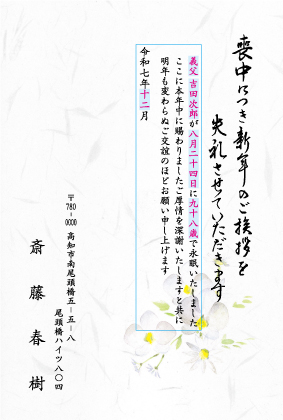 喪中につき新年のご挨拶を
失礼させていただきます
義父 吉田次郎が八月二十四日に九十八歳で永眠いたしました
ここに本年中に賜わりましたご厚情を深謝いたしますと共に
明年も変わらぬご交誼のほどお願い申し上げます
令和七年十二月
〒780-0000 高知市南尾頭橋五-五-八
尾頭橋ハイツ八〇四
斎藤春樹